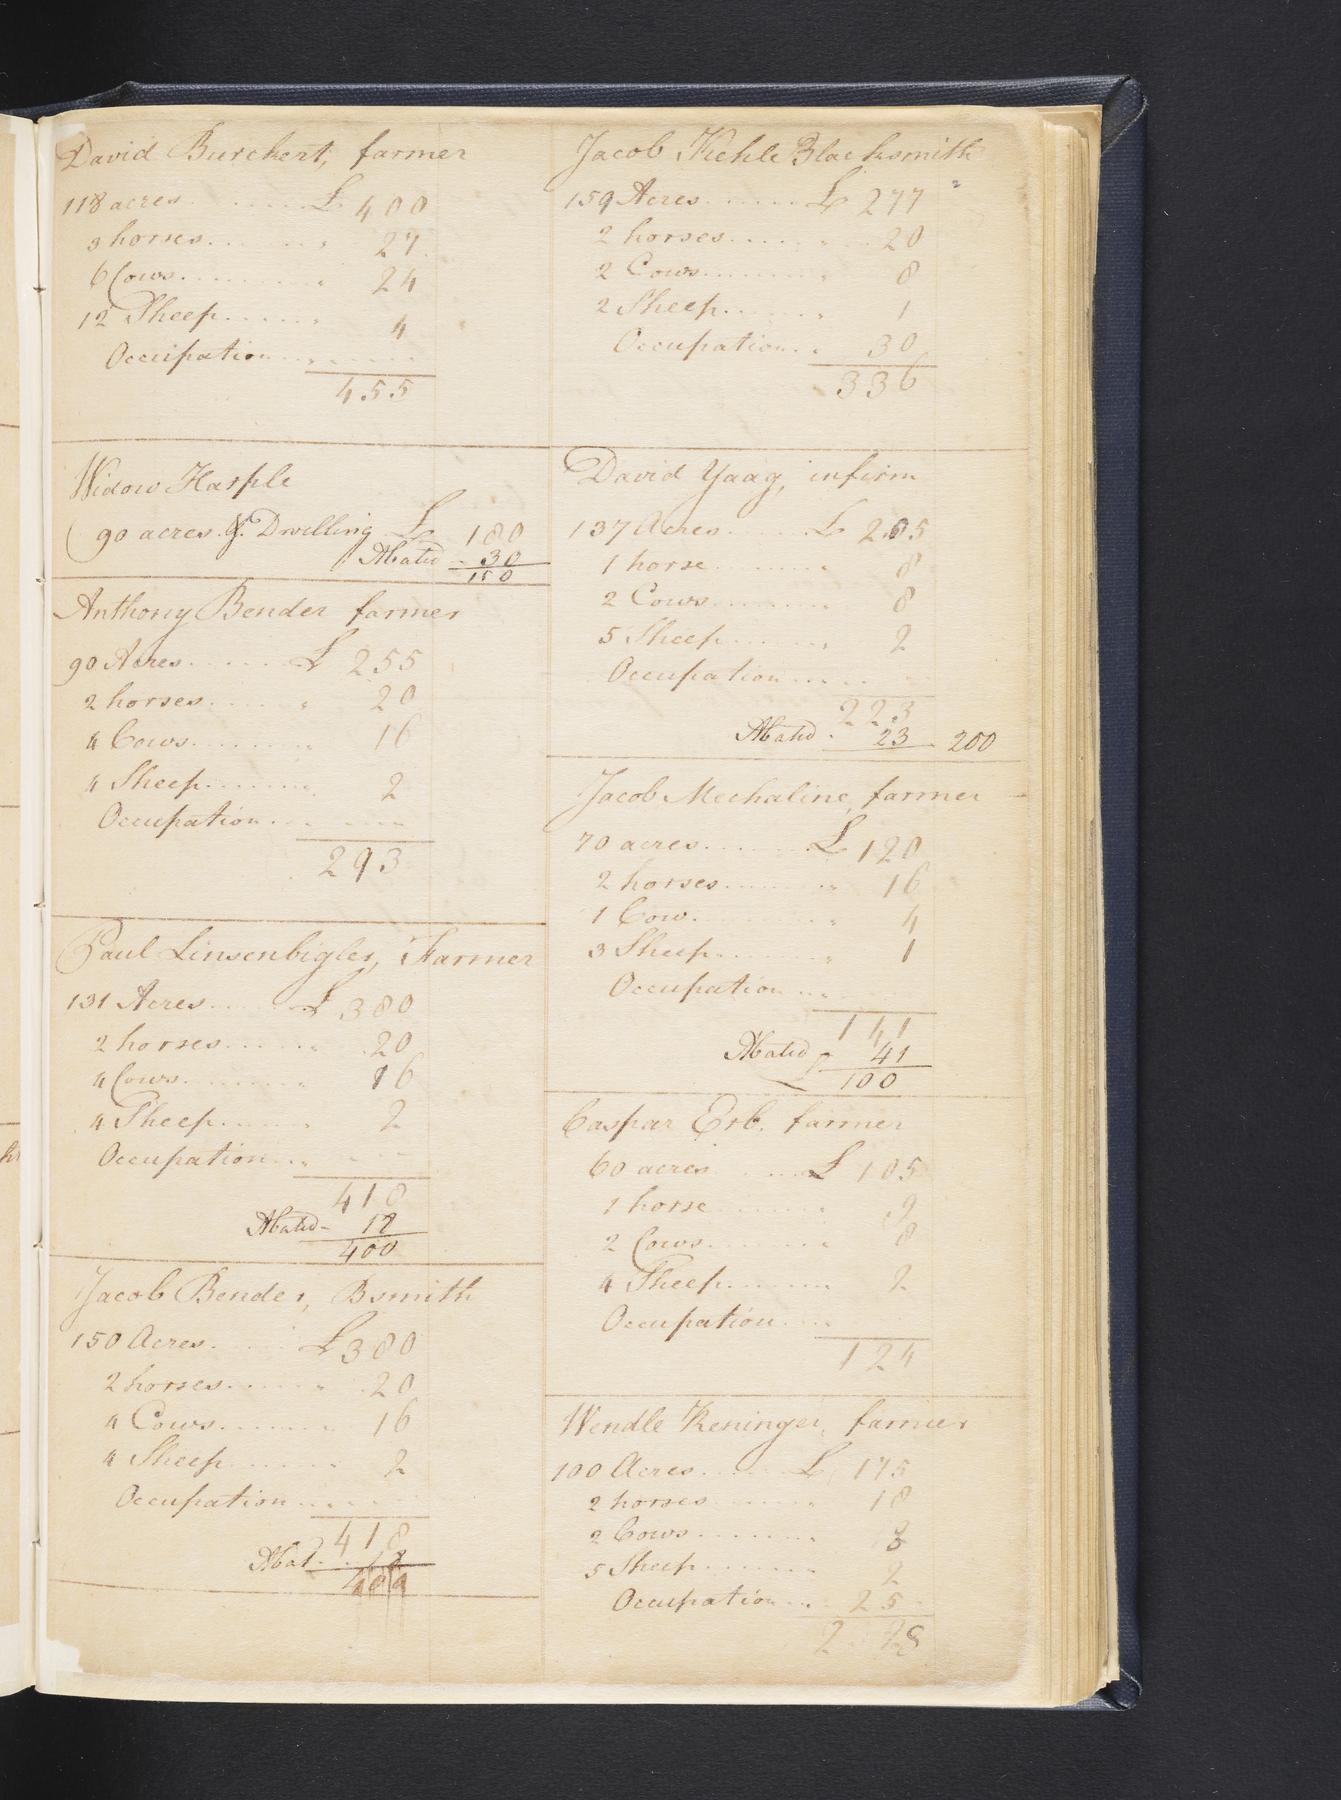 David Burchert, farmer
118 acres........£ 400
3 horses........" 27
6 Cows........" 24
12 Sheep......" 4
Occupation........
455
Widow Harple
90 acres. & Dwelling £ 180
Abated - 30
150
Anthony Bender farmer
90 Acres.......£ 255
2 horses......" 20
4 Cows........" 16
4 Sheep......." 2
Occupation........
293
Paul Linsenbigler, Farmer
131 Acres......£ 380
2 horses......" 20
4 Cows........" 16
4 Sheep......" 2
Occupation........
418
Abated - 18
400
Jacob Bender, Bsmith
150 Acres.......£ 380
2 horses......" 20
4 Cows........" 16
4 Sheep......" 2
Occupation........
418
Abat. 18
400
Jacob Kehle Blacksmith
159 Acres......£ 277
2 horses......" 20
2 Cows........" 8
2 Sheep......." 1
Occupation..." 30
336
David Yaag, infirm
137 Acres......£ 205
1 horse......." 8
2 Cows........" 8
5 Sheep......." 2
Occupation........
223
Abated - 23 200
Jacob Mechaline, farmer
70 acres.......£ 120
2 horses......" 16
1 Cow........." 4
3 Sheep......." 1
Occupation........
141
Abated 41
100
Caspar Erb. farmer
60 acres.......£ 105
1 horse......." 9
2 Cows........" 8
4 Sheep......." 2
Occupation........
124
Wendle Reninger, farmer
100 Acres......£ 175
2 horses......" 18
2 Cows........" 8
5 Sheep......." 2
Occupation..." 25
2 28